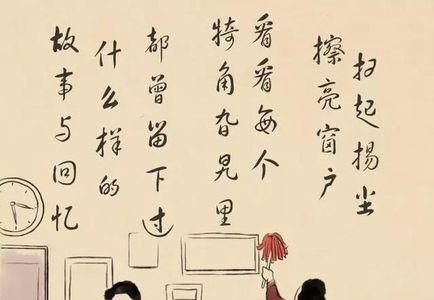 扫起揚尘
擦亮窗户
看看每个
犄角旮旯里
都曾留下过
什么样的
故事与回忆